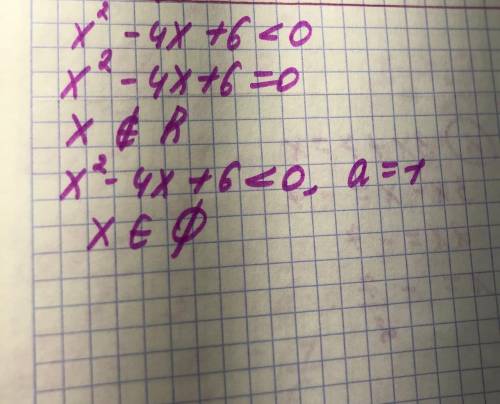 x² - 4x + 6 < 0
x² - 4x + 6 = 0
x ∉ R
x² - 4x + 6 < 0, a = +
x ∈ ∅